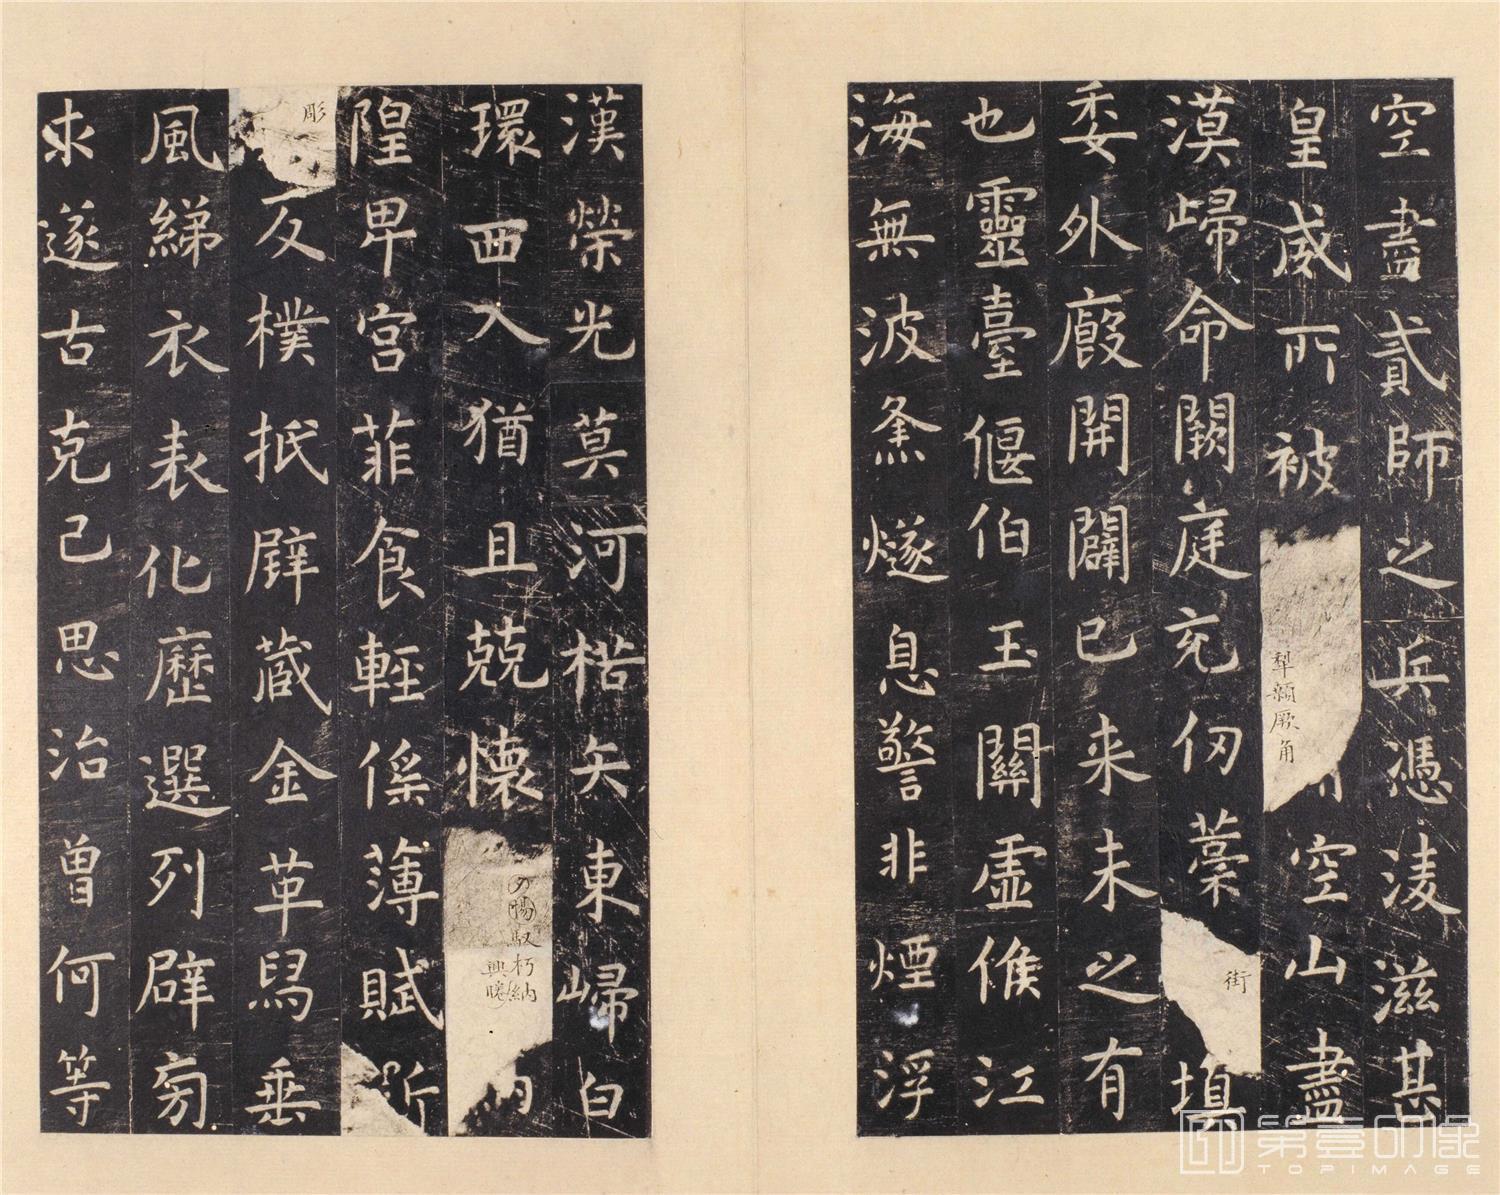 空盡貳師之兵憑淩滋甚
皇威所被
犁顙厥角
空山盡
漠歸命闕庭充仞藁
街
填
委外廄開闢已来未之有
也靈臺偃伯玉關虛候江
海無波烽燧息警非煙浮
漢榮光莫河楛矢東歸白
環西入猶且兢懷
夕惕馭朽納
興睠
納
隍卑宮菲食輕徭薄賦斲
彫
反樸抵璧藏金革舄垂
風綈衣表化歷選列辟旁
求遂古克己思治曾何等
第壹印像
TOPIMAGE